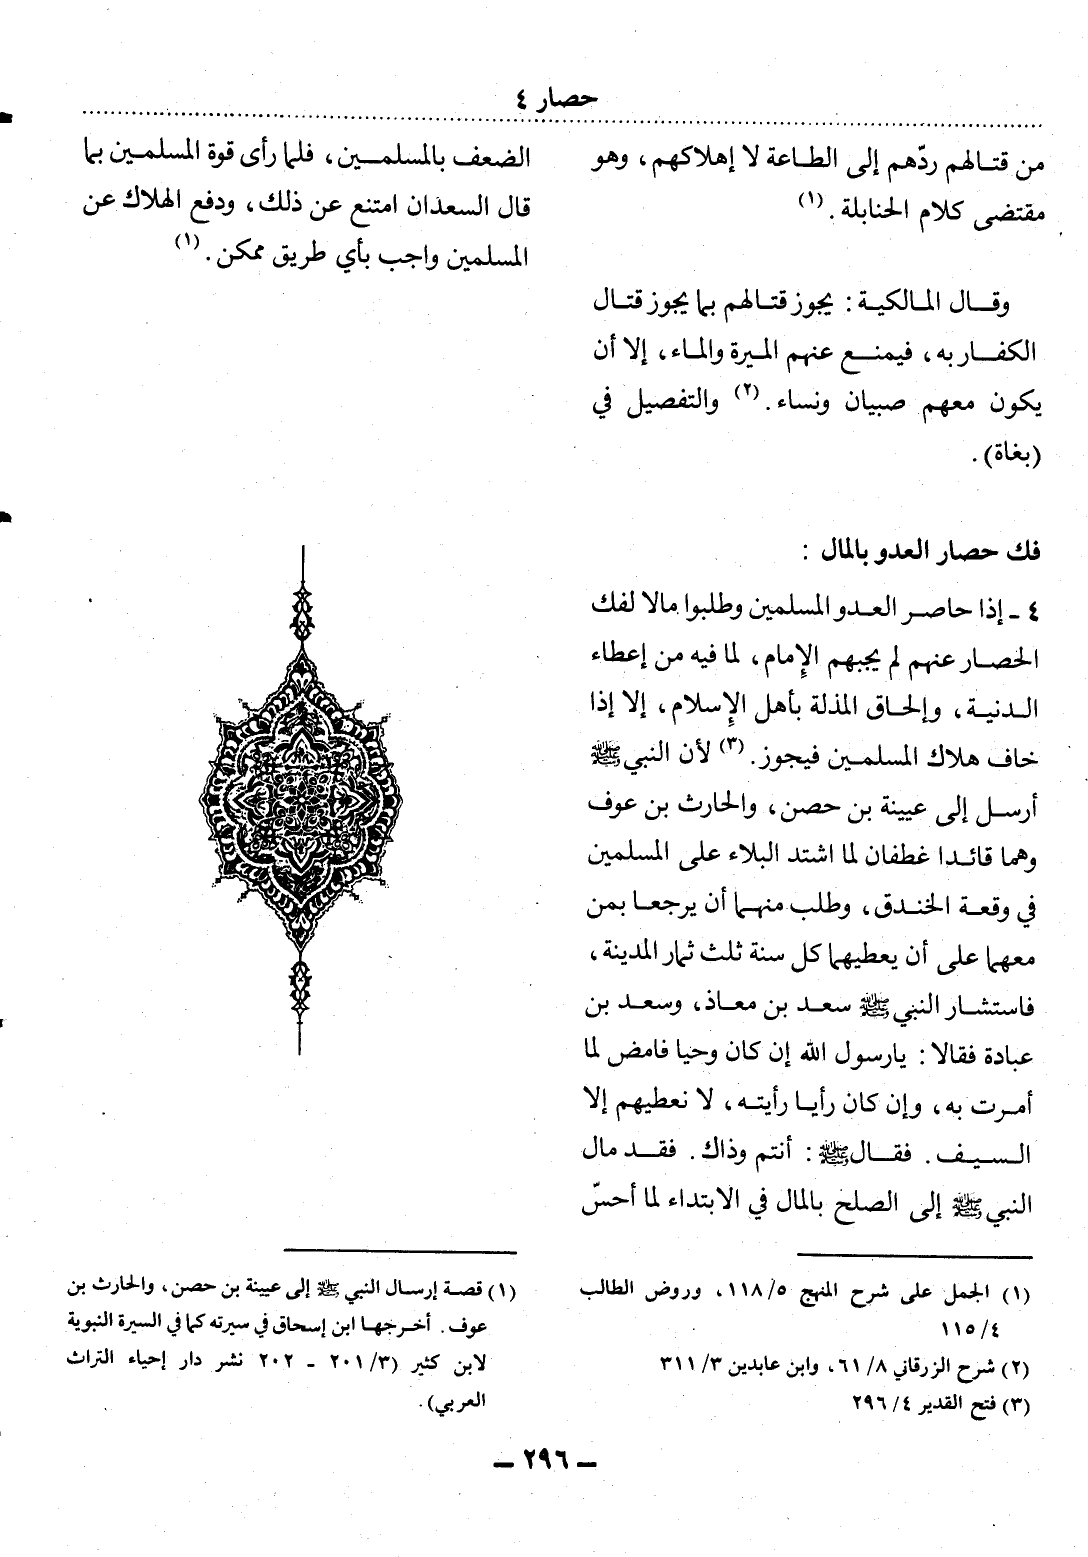 حصار ٤
من قتالهم ردّهم إلى الطاعة لا إهلاكهم، وهو
مقتضى كلام الحنابلة. (١)
وقال المالكية: يجوز قتالهم بما يجوز قتال
الكفار به، فيمنع عنهم الميرة والماء، إلا أن
يكون معهم صبيان ونساء. (٢) والتفصيل في
(بغاة).
فك حصار العدو بالمال :
٤ ـ إذا حاصر العدو المسلمين وطلبوا مالا لفك
الحصار عنهم لم يجبهم الإمام، لما فيه من إعطاء
الدنية، وإلحاق المذلة بأهل الإسلام، إلا إذا
خاف هلاك المسلمين فيجوز. (٣) لأن النبي ﷺ
أرسل إلى عيينة بن حصن، والحارث بن عوف
وهما قائدا غطفان لما اشتد البلاء على المسلمين
في وقعة الخندق، وطلب منهما أن يرجعا بمن
معهما على أن يعطيهما كل سنة ثلث ثمار المدينة،
فاستشار النبي ﷺ سعد بن معاذ، وسعد بن
عبادة فقالا: يارسول الله إن كان وحيا فامض لما
أمرت به، وإن كان رأيا رأيته، لا نعطيهم إلا
السيف. فقال ﷺ : أنتم وذاك. فقد مال
النبي ﷺ إلى الصلح بالمال في الابتداء لما أحسّ
(١) الجمل على شرح المنهج ٥/ ١١٨، وروض الطالب
٤/ ١١٥
(٢) شرح الزرقاني ٨/ ٦١، وابن عابدين ٣/ ٣١١
(٣) فتح القدير ٤/ ٢٩٦
الضعف بالمسلمين، فلما رأى قوة المسلمين بما
قال السعدان امتنع عن ذلك، ودفع الهلاك عن
المسلمين واجب بأي طريق ممكن. (١)
(١) قصة إرسال النبي ﷺ إلى عيينة بن حصن، والحارث بن
عوف. أخرجها ابن إسحاق في سيرته كما في السيرة النبوية
لابن كثير (٣/ ٢٠١ - ٢٠٢ نشر دار إحياء التراث
العربي).
ـ ٢٩٦ ـ